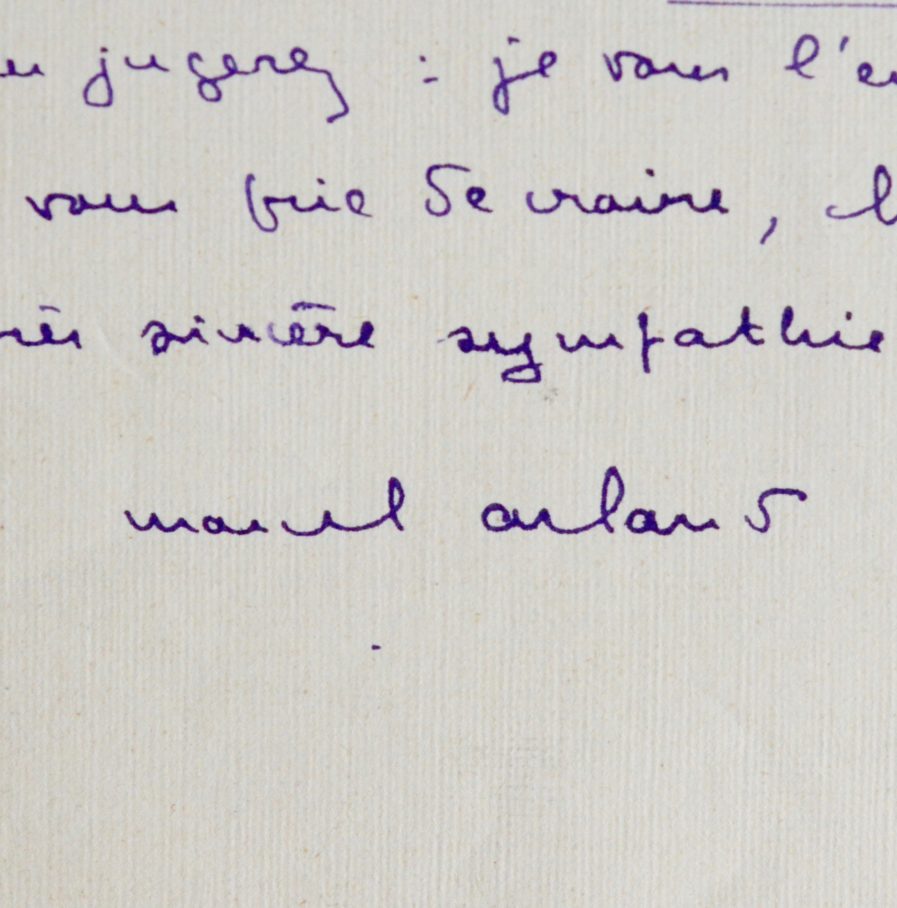 en jugerez : je vous l'en
vous prie de croire,
très sincère sympathie
marcel arland